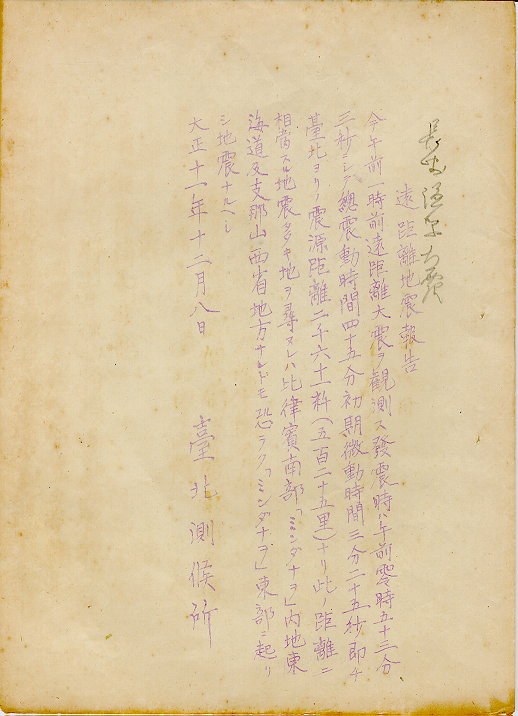 遠距離地震報告
今午前一時前遠距離大震ヲ観測ス發震時ハ午前零時五十三分
三秒ニシテ總震動時間四十五分初期微動時間三分二十五秒即チ
臺北ヨリノ震源距離二千六十粁(五百二十五里)ナリ此ノ距離ニ
相當スル地震多キ地ヲ尋ヌレハ比律賓南部「ミンダナヲ」内地東
海道及支那山西省地方ナルトモ恐ラク「ミンダナヲ」東部ニ起リ
シ地震ナルヘシ
大正十一年十二月八日
臺北測候所